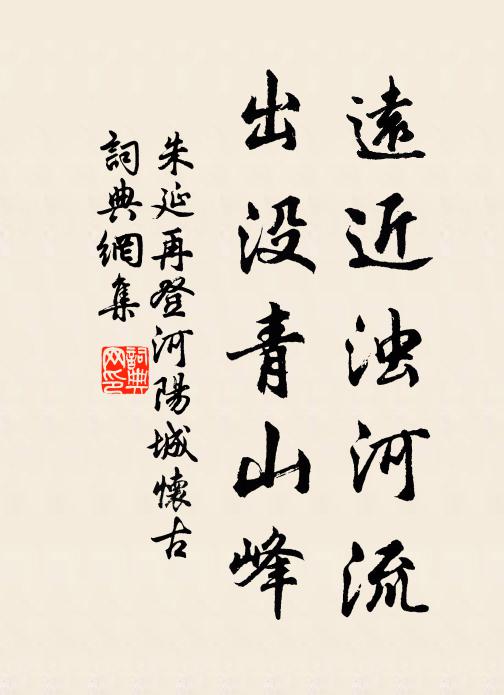 遠近浊河流
出没青山峰
朱延再登河陽城懷古
詞典網集
詞典
网印